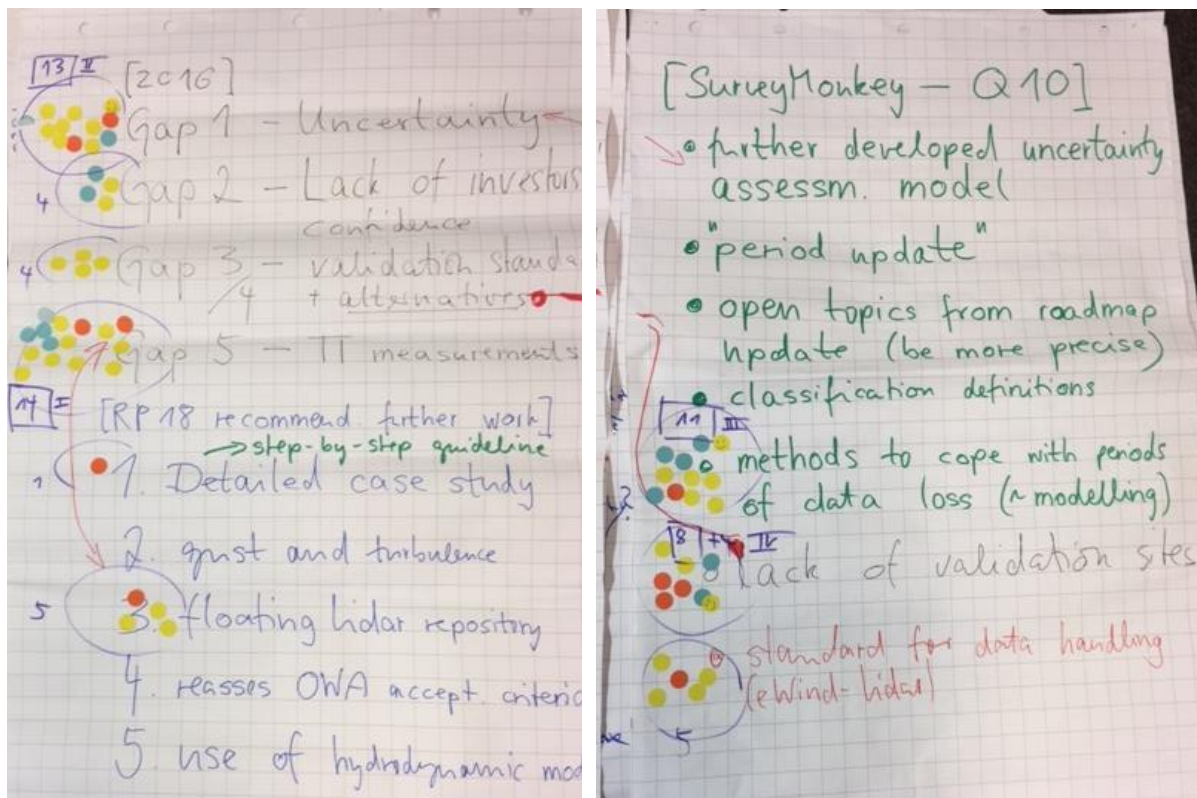 13 II
[2016]
Gap 1 - Uncertainty
4
Gap 2 - Lack of investors
confidence
4
Gap 3 - validation standa
/4 + alternatives
Gap 5 - TI measurements
14 I
[RP 18 recommend. further work]
→ step-by-step guideline
1
1. Detailed case study
2. gust and turbulence
5
3. floating lidar repository
4. reasses OWA accept. criteric
5. use of hydrodynamic mod
[SurveyMonkey - Q10]
• further developed uncertainty
assessm. model
• "period update"
• open topics from roadmap
update (be more precise)
• classification definitions
11 III
• methods to cope with periods
of data loss (~ modelling)
8 + IV
lack of validation sites
standard for data handling
(eWind-lidar)
5